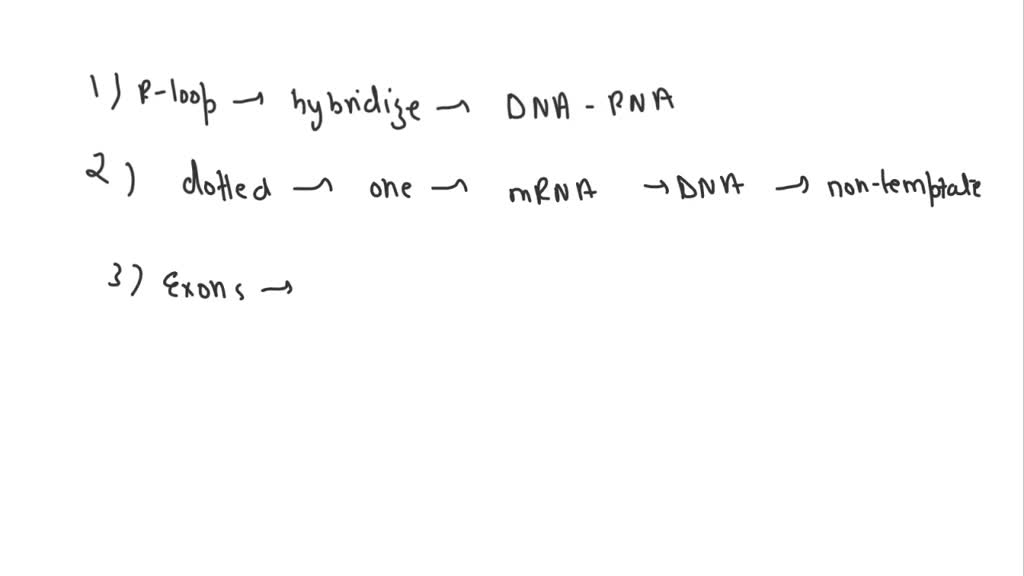 1) R-loop → hybridize → DNA - RNA
2) dotted → one → mRNA → DNA → non-template
3) Exons →